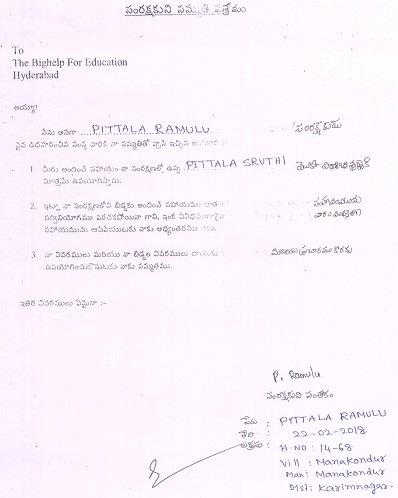 సంరక్షకుని సమ్మతి పత్రము
To
The Bighelp For Education
Hyderabad
అయ్యా!
నేను అనగా PITTALA RAMULU /సంరక్షకుడు
పైన ఉదహరించిన సంస్థ వారికి నా సమ్మతితో వ్రాసి ఇచ్చిన
1. మీరు అందించే సహాయం నా సంరక్షణలో ఉన్న PITTALA SRUTHI
మాత్రమే ఉపయోగిస్తాను.
2. ఇట్లా నా సంరక్షణలోని బిడ్డకు అందించే సహాయము
సద్వినియోగము పరచకపోయినా గాని, ఇంక ఏవిధమైన
సహాయమును ఆపివేయుటకు నాకు అభ్యంతరము లేదు.
3. నా వివరములు మరియు నా బిడ్డల వివరములు
ఉపయోగించుకొనుటకు నాకు సమ్మతము.
ఇతర వివరములు ఏమైనా :-
P. Ramulu
సంరక్షకుని సంతకం
పేరు : PITTALA RAMULU
తేది : 22-02-2018
అడ్రసు : H.NO : 14-68
Vill : Manakondur
Man : Manakondur
Dist : Karimnagar.